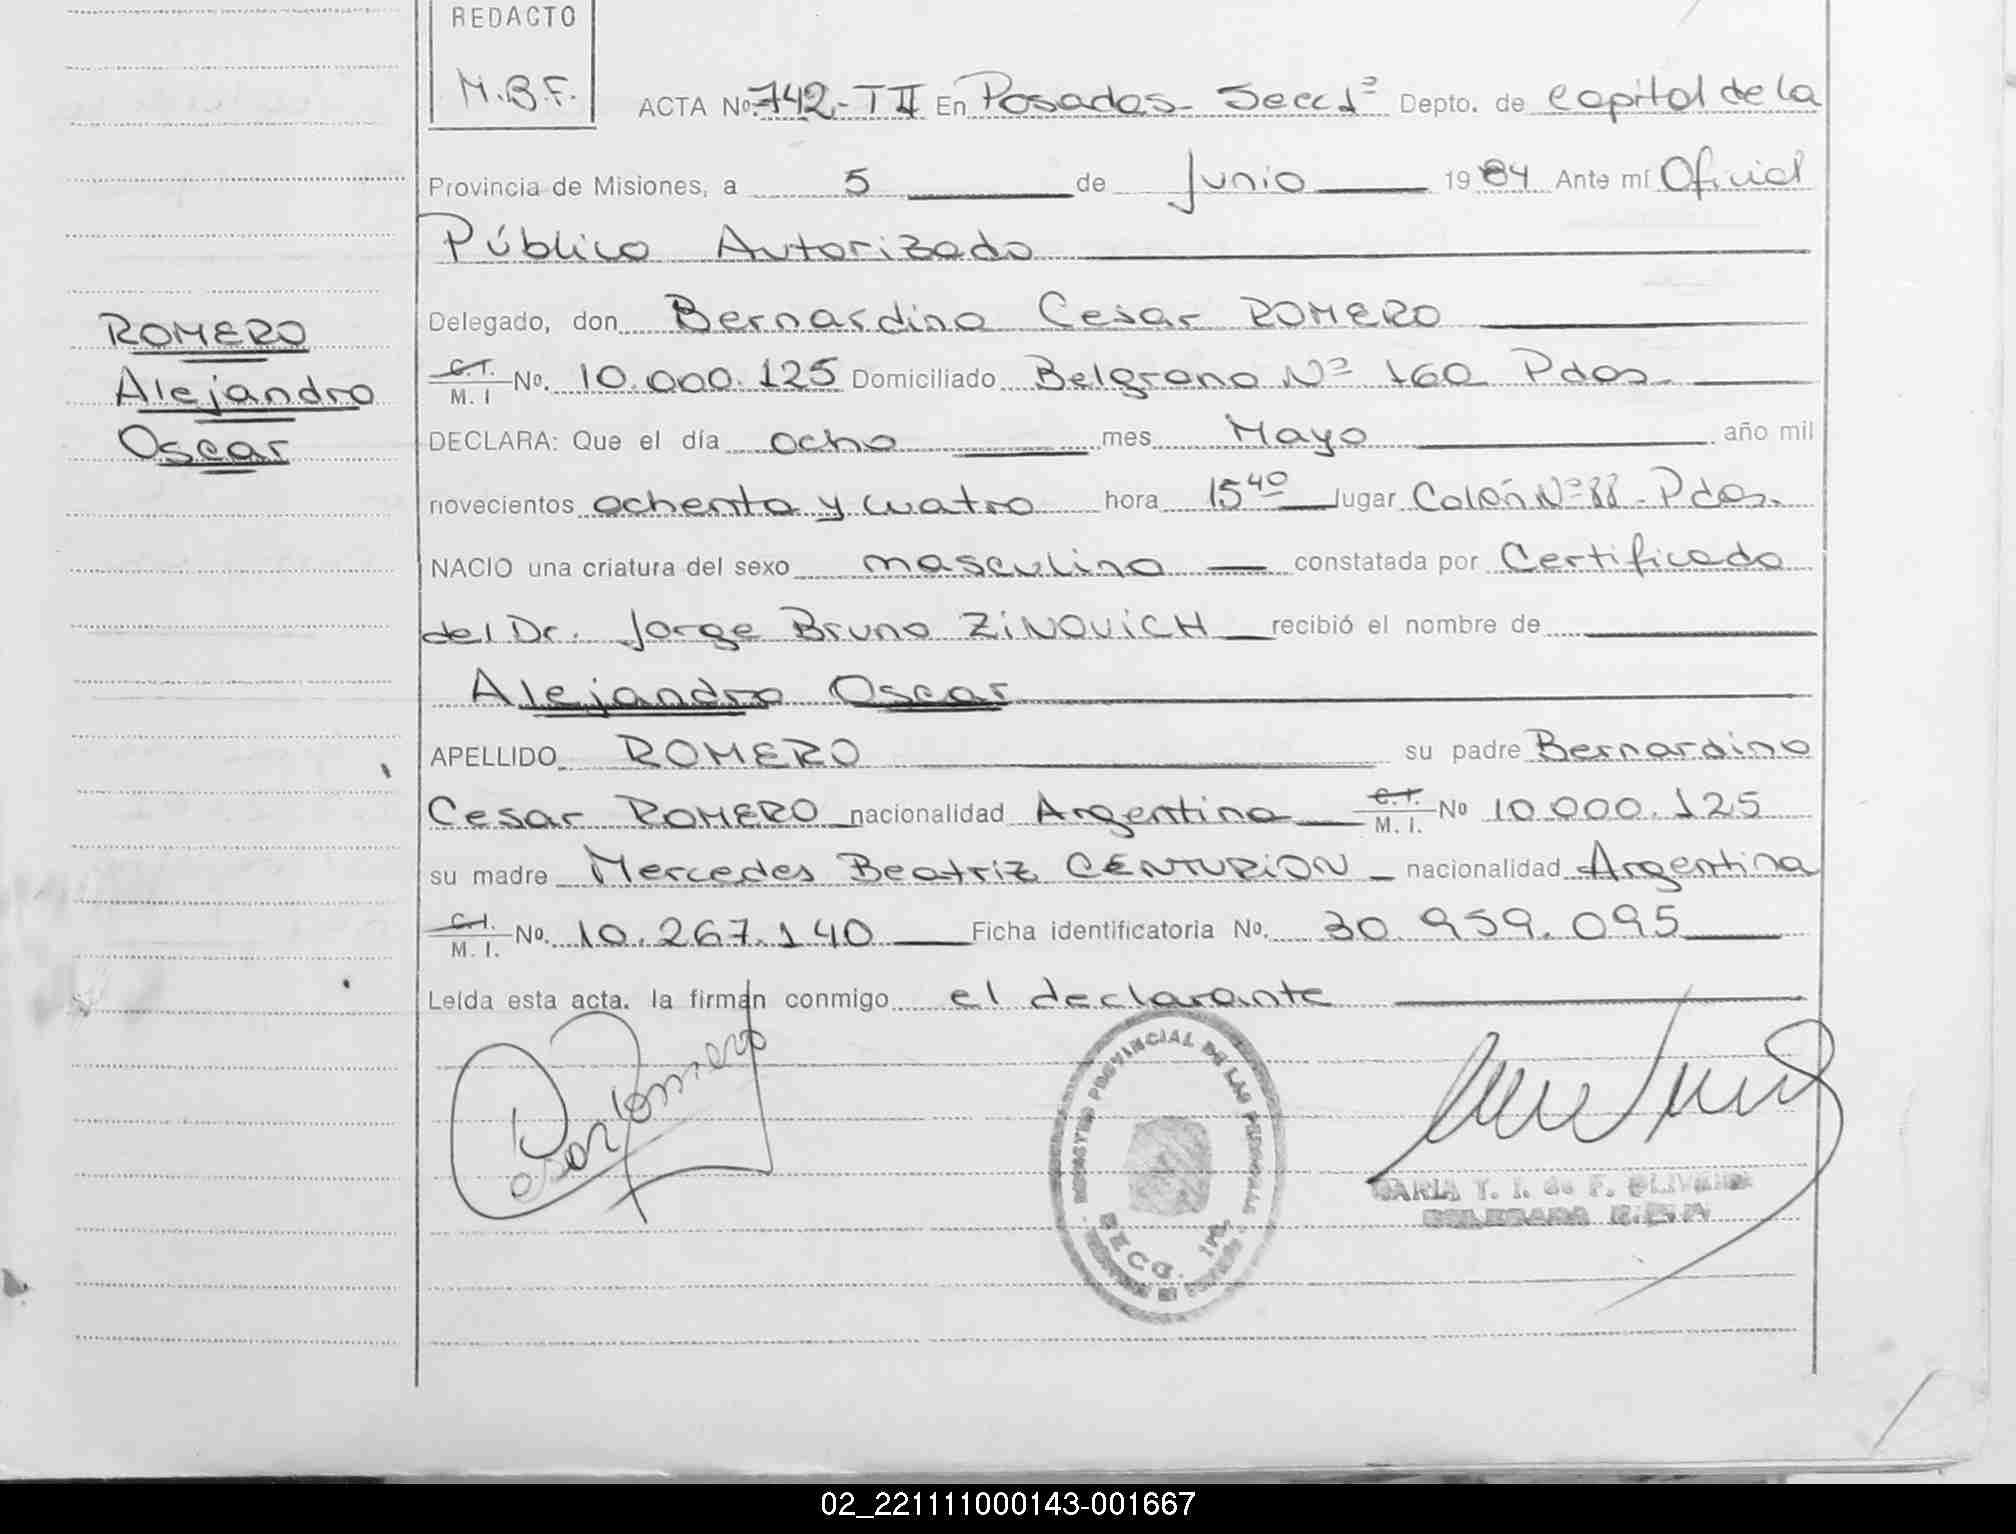 REDACTO
M.B.F.
ACTA No. 742.-TII En Posadas- Secc 1ª Depto. de Capital de la
Provincia de Misiones, a 5 de Junio 1984 Ante mí Oficial
Público Autorizado
Delegado, don Bernardino Cesar ROMERO
C.I. M. I No. 10.000.125 Domiciliado Belgrano Nº 160 Pdas.
DECLARA: Que el día ocho mes Mayo año mil
novecientos ochenta y cuatro hora 15 40 lugar Colón Nº 88 - Pdas.
NACIO una criatura del sexo masculino constatada por Certificado
del Dr. Jorge Bruno ZINOVICH recibió el nombre de
Alejandro Oscar
APELLIDO ROMERO su padre Bernardino
Cesar ROMERO nacionalidad Argentina C.I. M. I. No 10.000.125
su madre Mercedes Beatriz CENTURION nacionalidad Argentina
C.I. M. I. No. 10.267.140 Ficha identificatoria No. 30.959.095
Leída esta acta. la firman conmigo el declarante
ROMERO
Alejandro
Oscar
Romero
REGISTRO PROVINCIAL DE LAS PERSONAS
SECC. 1ra
MARIA T. I. de F.
DELEGADA
02_221111000143-001667